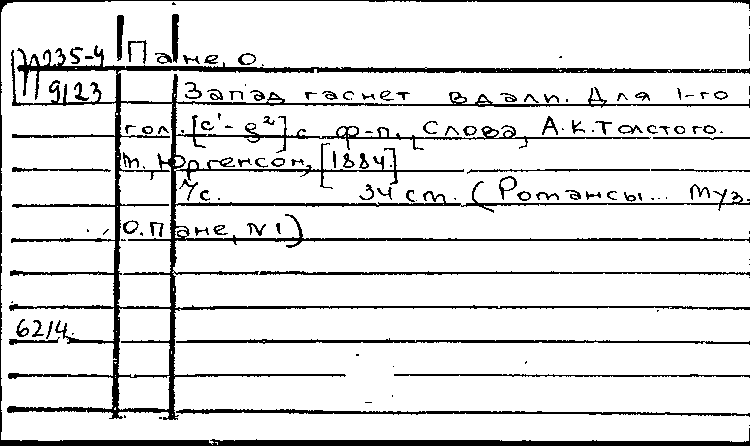 235-4 Пане, О.
9/23 Запад гаснет вдали. Для 1-го
гол. [c¹-g²] с ф-п. [Слова] А.К.Толстого.
М., Юргенсон, [1884]
7с. 34 см. (Романсы... муз.
О.Пане, №1)
6214.